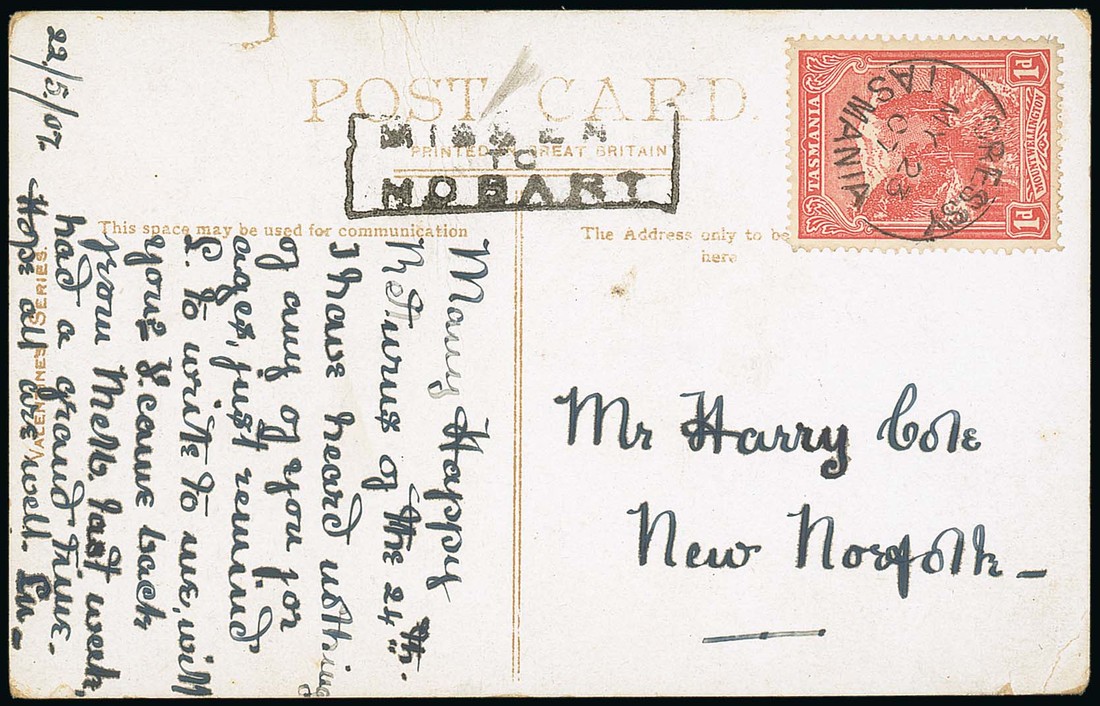 POST CARD.
MISSEN
TO
HOBART
PRINTED IN GREAT BRITAIN
This space may be used for communication
The Address only to be
here
VALENTINES SERIES.
1d
1d
TASMANIA
MOUNT WELLINGTON
CRESSY
MY 23
07
TASMANIA
22/5/07.
Many Happy
Returns of the 24th.
I have heard nothing
of any of you for
ages, just remind
L. to write to me, will
you? I came back
from Melb. last week,
had a grand time.
Hope all are well.
Mr Harry Cole
New Norfolk_